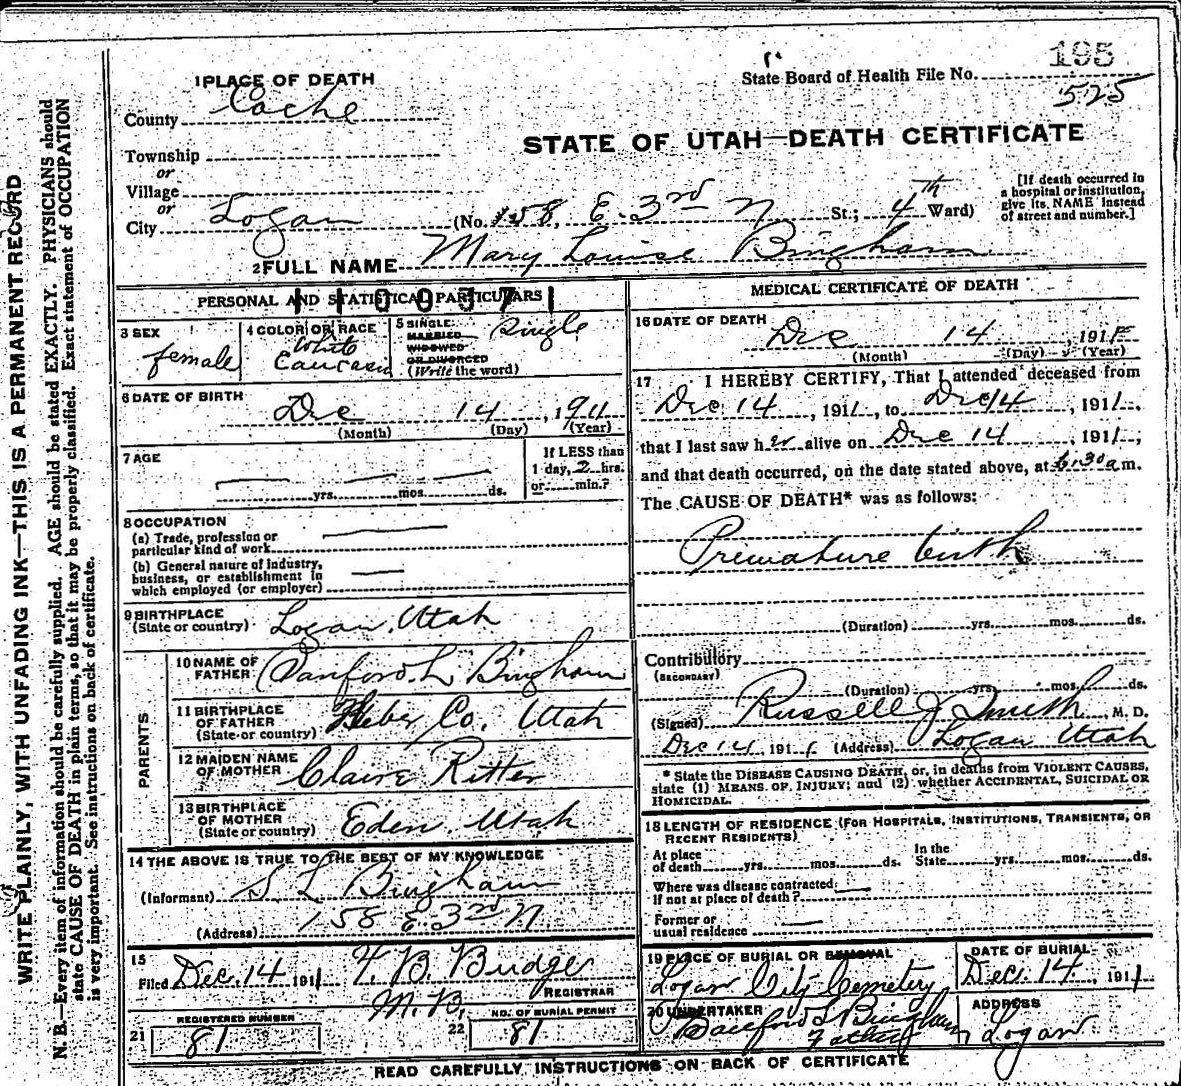 195
State Board of Health File No.
525
1 PLACE OF DEATH
County Cache
STATE OF UTAH—DEATH CERTIFICATE
Township
or
Village
or
City Logan (No. 158, E. 3rd N St.; 4th Ward)
[If death occurred in
a hospital or institution,
give its NAME instead
of street and number.]
2 FULL NAME Mary Louise Bingham
PERSONAL AND STATISTICAL PARTICULARS
3 SEX
female
4 COLOR OR RACE
White
5 SINGLE
MARRIED
WIDOWED
OR DIVORCED
(Write the word)
Single
6 DATE OF BIRTH
Dec 14, 1911
(Month) (Day) (Year)
7 AGE
yrs. mos. ds.
If LESS than
1 day, 2 hrs.
or min.?
8 OCCUPATION
(a) Trade, profession or
particular kind of work
(b) General nature of industry,
business, or establishment in
which employed (or employer)
9 BIRTHPLACE
(State or country) Logan, Utah
PARENTS
10 NAME OF
FATHER Sanford L Bingham
11 BIRTHPLACE
OF FATHER
(State or country) Weber Co. Utah
12 MAIDEN NAME
OF MOTHER Claire Ritter
13 BIRTHPLACE
OF MOTHER
(State or country) Eden, Utah
14 THE ABOVE IS TRUE TO THE BEST OF MY KNOWLEDGE
(Informant) S L Bingham
(Address) 158 E. 3rd N
15
Filed Dec. 14 1911
Budge
M. D.
REGISTRAR
21 REGISTERED NUMBER
81
22 NO. OF BURIAL PERMIT
81
MEDICAL CERTIFICATE OF DEATH
16 DATE OF DEATH
Dec 14, 1911
(Month) (Day) (Year)
17 I HEREBY CERTIFY, That I attended deceased from
Dec 14, 1911, to Dec 14, 1911,
that I last saw her alive on Dec 14, 1911;
and that death occurred, on the date stated above, at 6:30 a m.
The CAUSE OF DEATH* was as follows:
Premature birth
(Duration) yrs. mos. ds.
Contributory
(SECONDARY)
(Duration) yrs. mos. ds.
(Signed) Russell J Smith, M. D.
Dec 14, 1911 (Address) Logan Utah
* State the DISEASE CAUSING DEATH, or, in deaths from VIOLENT CAUSES,
state (1) MEANS OF INJURY; and (2) whether ACCIDENTAL, SUICIDAL OR
HOMICIDAL.
18 LENGTH OF RESIDENCE (FOR HOSPITALS, INSTITUTIONS, TRANSIENTS, OR
RECENT RESIDENTS)
At place
of death yrs. mos. ds.
In the
State yrs. mos. ds.
Where was disease contracted,
if not at place of death?
Former or
usual residence
19 PLACE OF BURIAL OR REMOVAL
Logan City Cemetery
DATE OF BURIAL
Dec. 14, 1911
20 UNDERTAKER
Sanford L Bingham
Father
ADDRESS
Logan
READ CAREFULLY INSTRUCTIONS ON BACK OF CERTIFICATE
WRITE PLAINLY, WITH UNFADING INK—THIS IS A PERMANENT RECORD
N. B.—Every item of information should be carefully supplied. AGE should be stated EXACTLY. PHYSICIANS should
state CAUSE OF DEATH in plain terms, so that it may be properly classified. Exact statement of OCCUPATION
is very important. See instructions on back of certificate.